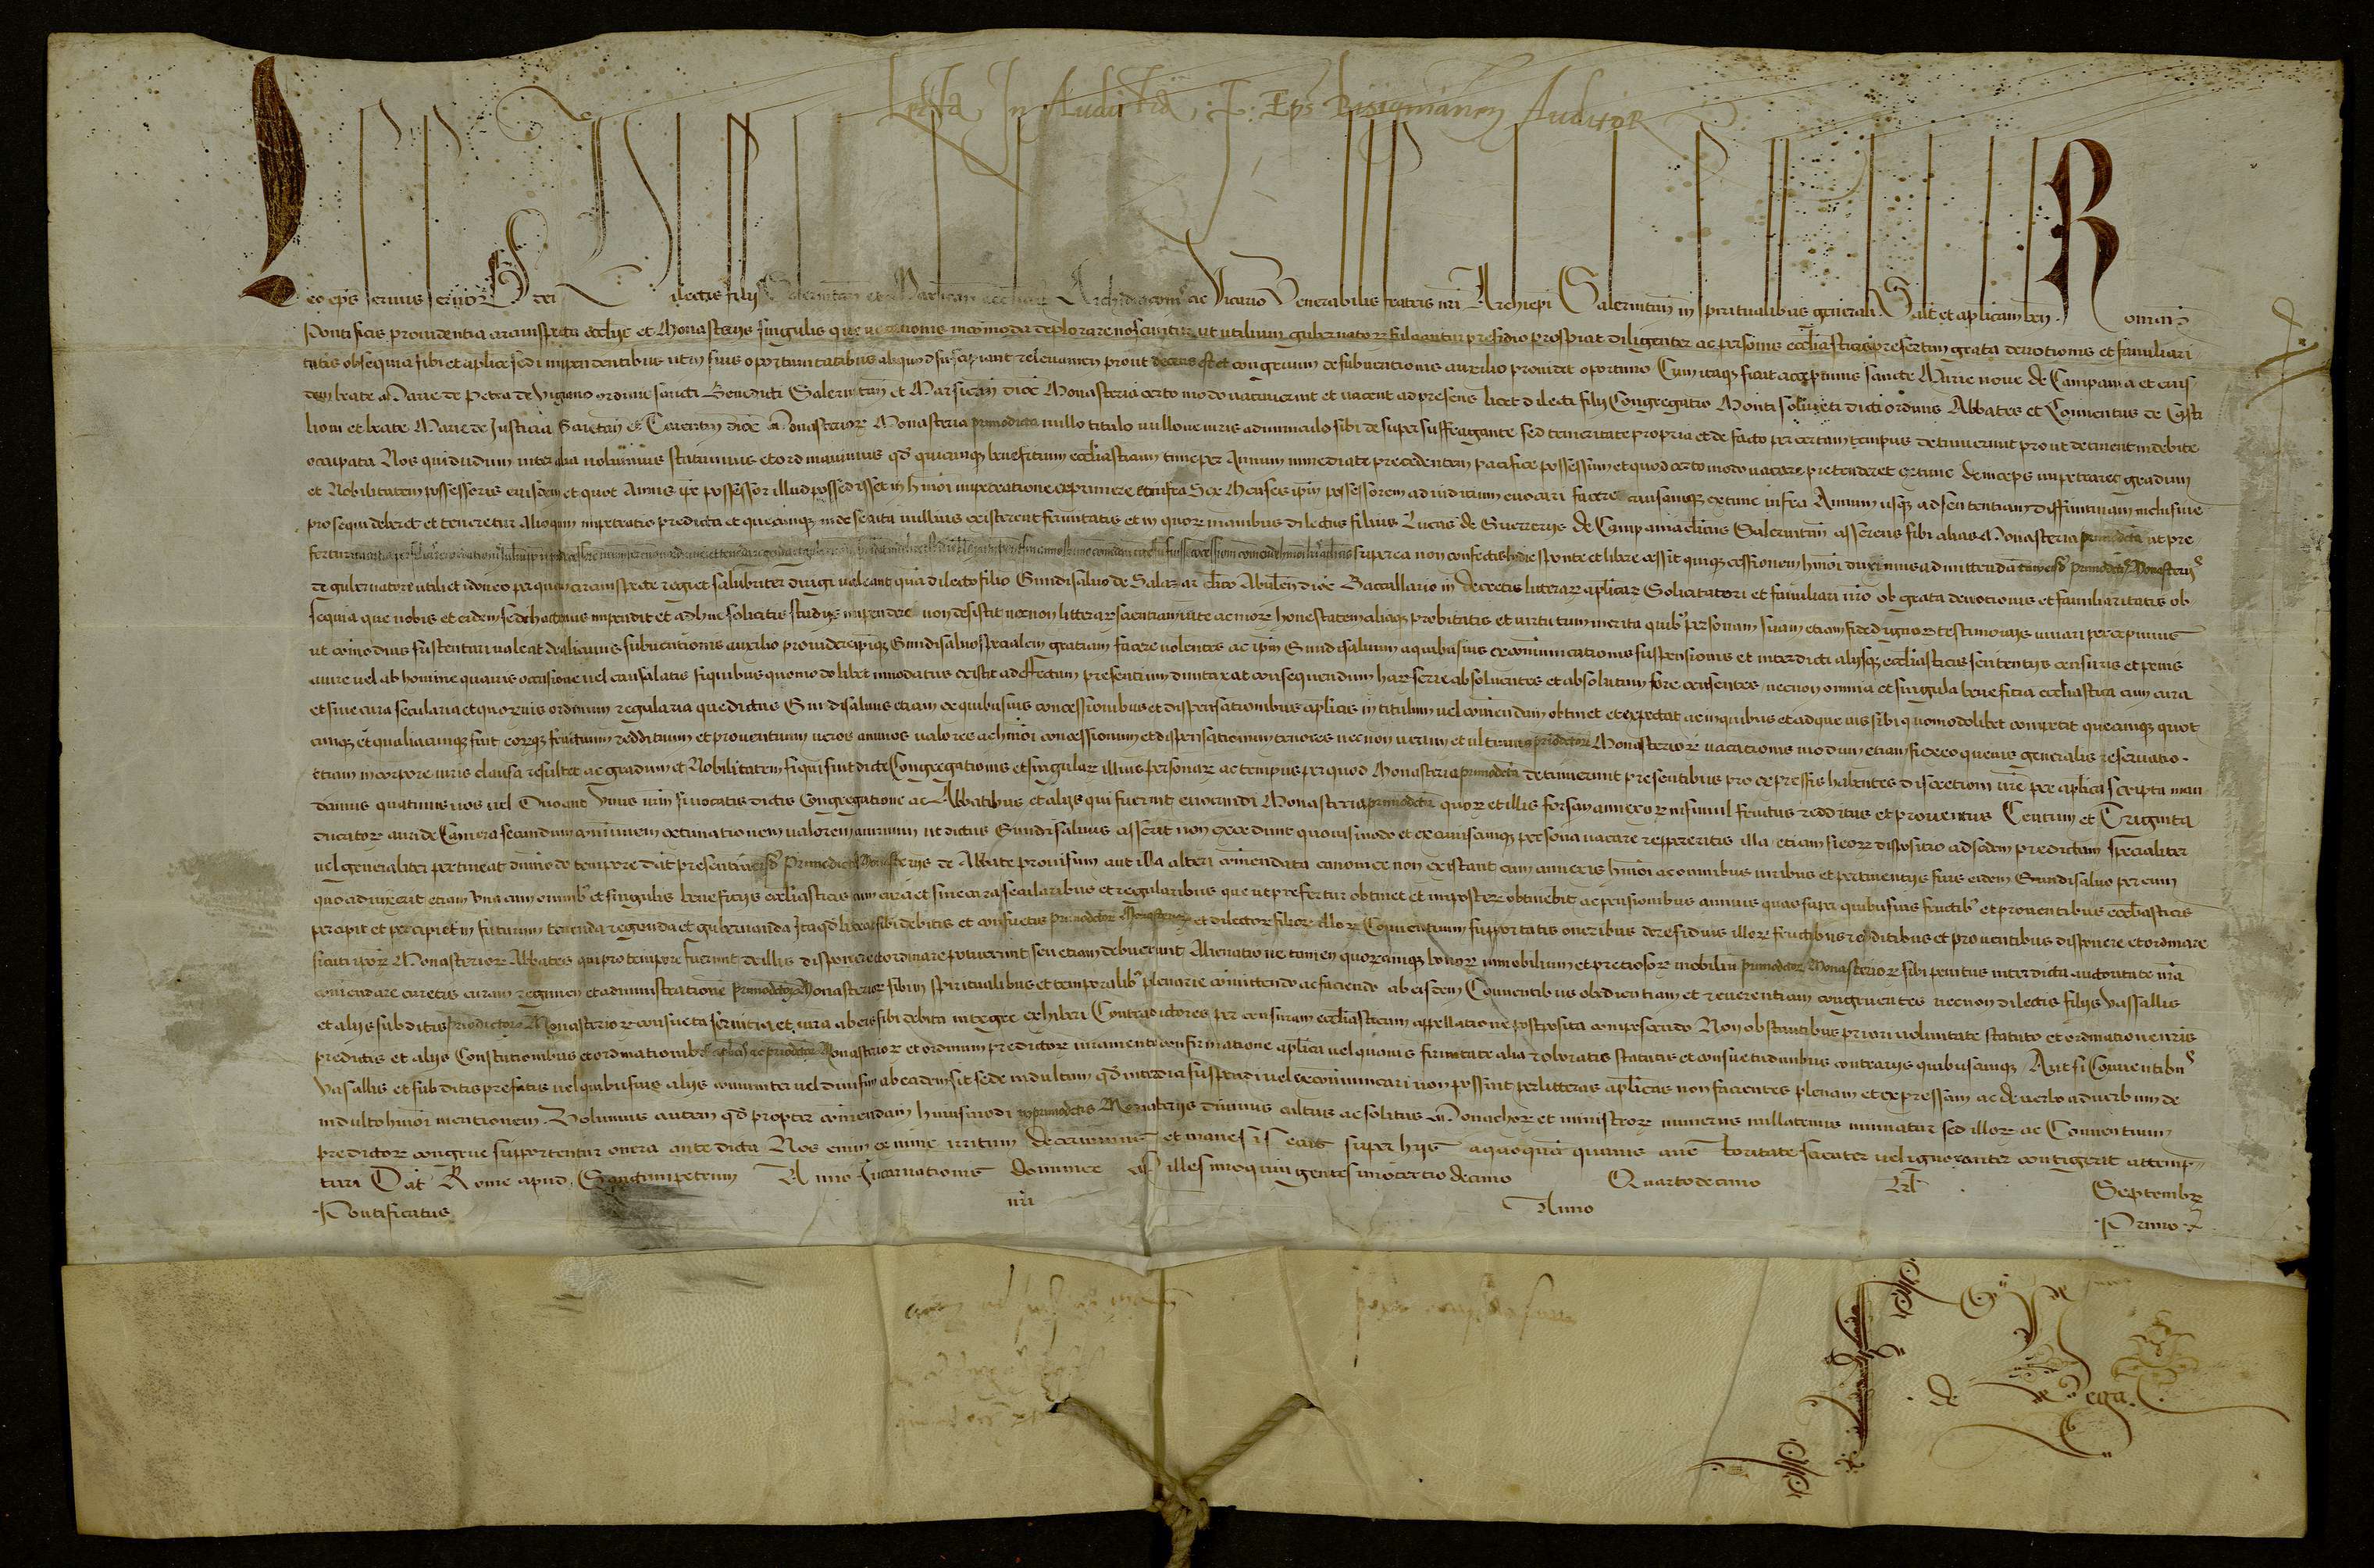 Lecta In Audientia, F. Eps Bisignianen Auditor
Leo eps seruus seruor Dei Dilectis filijs Salernitan et Marsican eccliar Archidiaconis ac Vicario Venerabilis fratris nri Archiepi Salernitan in spiritualibus generali Salt et aplicam ben. Romani
Pontificis prouidentia circumspecta ecclijs et Monasterijs singulis que uacationis incomoda deplorare noscuntur ut utilium gubernator fulciantur presidio prospicit diligenter ac personis ecclesiasticis presertim grata deuotionis et familiari
tatis obsequia sibi et aplice sedi impendentibus ut in suis oportunitatibus aliquod suscipiant releuamen prout decens est et congruum de subuentionis auxilio prouidet oportuno Cum itaq sicut accepimus sancte Marie noue de Campania et eius
dem beate Marie de Petra de Vigiano ordinis sancti Benedicti Salernitan et Marsican dioc Monasteria certo modo uacauerint et uacent ad presens licet dilecti filij Congregatio Montisoliueti dicti ordinis Abbates et Conuentus de Casti
lioni et beate Marie de Justicia Monasterior Monasteria primodicta nullo titulo nulloue iuris adminiculo sibi desuper suffragante sed temeritate propria et de facto per certum tempus detinuerint prout detinent indebite
occupata Nos qui dudum inter alia uoluimus statuimus et ordinauimus qd quicunq beneficium ecclesiasticum tunc per Annum immediate precedentem pacifice possessum et quod certo modo uacare pretenderet extunc deinceps impetraret gradum
et Nobilitatem possessoris eiusdem et quot Annis ipe possessor illud possedisset in hmoi impetratione exprimere et infra Sex Menses ipm possessorem ad iudicium euocari facere causamq extunc infra Annum usq ad sententiam diffinitiuam inclusiue
prosequi deberet et teneretur Alioquin impetratio predicta et quecunq inde secuta nullius existerent firmitatis et in quor manibus dilectus filius Lucas de Guerrerijs de Campania clicus Salernitan asserens sibi alias Monasteria primodicta ut pre
fertur super ea non confectis hodie sponte et libere cessit quiq cessionem hmoi duximus admittendam primodictis Monasterijs
de gubernatore utili et idoneo per quem circumspecte regi et salubriter dirigi ualeant qua dilecto filio Gundisaluo de Salazar clico Abulen dioc Baccallario in Decretis litterar aplicar Solicitatori et familiari nro ob grata deuotionis et familiaritatis ob
sequia que nobis et eidem sedi hactenus impendit et adhuc solicitis studijs impendere non desistit necnon litterar scientiam uite ac mor honestatem aliaq probitatis et uirtutum merita quib personam suam etiam fidedignor testimonijs iuuari percepimus
ut comodius sustentari ualeat de alicuius subuentionis auxilio prouidere ipiq Gundisaluo specialem gratiam facere uolentes ac ipm Gundisaluum a quibusuis excomunicationis suspensionis et interdicti alijsq ecclesiasticis sententijs censuris et penis
a iure uel ab homine quauis occasione uel causa latis si quibus quomodolibet innodatus existit ad effectum presentium dumtaxat consequendum har serie absoluentes et absolutum fore censentes necnon omnia et singula beneficia ecclesiastica cum cura
et sine cura secularia et quoruis ordinum regularia que dictus Gundisaluus etiam ex quibusuis concessionibus et dispensationibus aplicis in titulum uel comendam obtinet et expectat ac in quibus et ad que ius sibi quomodolibet competit quecunq quot
cunq et qualiacunq sint eorq fructuum reddituum et prouentuum ueros annuos ualores ac hmoi concessionum et dispensationum tenores necnon uerum et ultimum primodictor Monasterior uacationis modum etiam si ex eo queuis generalis reseruatio
etiam in corpore iuris clausa resultet ac gradum et Nobilitatem si qui sint dicte Congregationis et singular illius personar ac tempus per quod Monasteria primodicta detinuerint presentibus pro expressis habentes discretioni ure per aplica scripta man
damus quatinus uos uel Duo aut Vnus urm si uocatis dictis Congregatione ac Abbatibus et alijs qui fuerint euocandi Monasteria primodicta quor et illis forsan annexor insimul fructus redditus et prouentus Centum et Triginta
ducator auri de Camera secundum communem extimationem ualorem annuum ut dictus Gundisaluus asserit non excedunt quouismodo et ex cuiuscunq persona uacare reppereritis illa etiam si eor dispositio ad sedem predictam specialiter
uel generaliter pertineat dummodo tempore dat presentium eisd Primodictis Monasterijs de Abbate prouisum aut illa alteri comendata canonice non existant cum annexis hmoi ac omnibus iuribus et pertinentijs suis eidem Gundisaluo per eum
quoaduixerit etiam Vna cum omnib et singulis beneficijs ecclesiasticis cum cura et sine cura secularibus et regularibus que ut prefertur obtinet et imposter obtinebit ac pensionibus annuis quas super quibusuis fructib et prouentibus ecclesiasticis
percipit et percipiet in futurum tenenda regenda et gubernanda Itaqd liceat sibi debitis et consuetis primodictor Monasterior et dilector filior illor Conuentuum supportatis oneribus de residuis illor fructibus redditibus et prouentibus disponere et ordinare
sicuti ipor Monasterior Abbates qui pro tempore fuerunt de illis disponere et ordinare potuerunt seu etiam debuerunt Alienatione tamen quorcunq bonor immobilium et pretiosor mobilium primodictor Monasterior sibi penitus interdicta auctoritate nra
comendare curetis curam regimen et administrationem primodictor Monasterior sibi in spiritualibus et temporalib plenarie comittendo ac faciendo ab eisdem Conuentibus obedientiam et reuerentiam congruentes necnon dilectis filijs Vassallis
et alijs subditis primodictor Monasterior consueta seruitia et iura ab eis sibi debita integre exhiberi Contradictores per censuram ecclesiasticam appellatione postposita compescendo Non obstantibus priori uoluntate statuto et ordinatione nris
predictis et alijs Constitutionibus et ordinationib aplicis ac primodictor Monasterior et ordinum predictor iuramento confirmatione aplica uel quauis firmitate alia roboratis statutis et consuetudinibus contrarijs quibuscunq Aut si Conuentibus
Vasallis et subditis prefatis uel quibusuis alijs comuniter uel diuisim ab eadem sit sede indultum qd interdici suspendi uel excomunicari non possint per litteras aplicas non facientes plenam et expressam ac de uerbo ad uerbum de
indulto hmoi mentionem. Volumus autem qd propter comendam huiusmodi in primodictis Monasterijs diuinus cultus ac solitus Monachor et ministror numerus nullatenus minuatur sed illor ac Conuentuum
predictor congrue supportentur onera antedicta Nos enim ex nunc irritum decernimus et inane si secus super hijs a quoquam quauis auctoritate scienter uel ignoranter contigerit attemp
tari Dat Rome apud Sanctumpetrum Anno Incarnationis Dominice Millesimoquingentesimotertiodecimo Quartodecimo kl Septembr
Pontificatus nri Anno Primo
de Vega